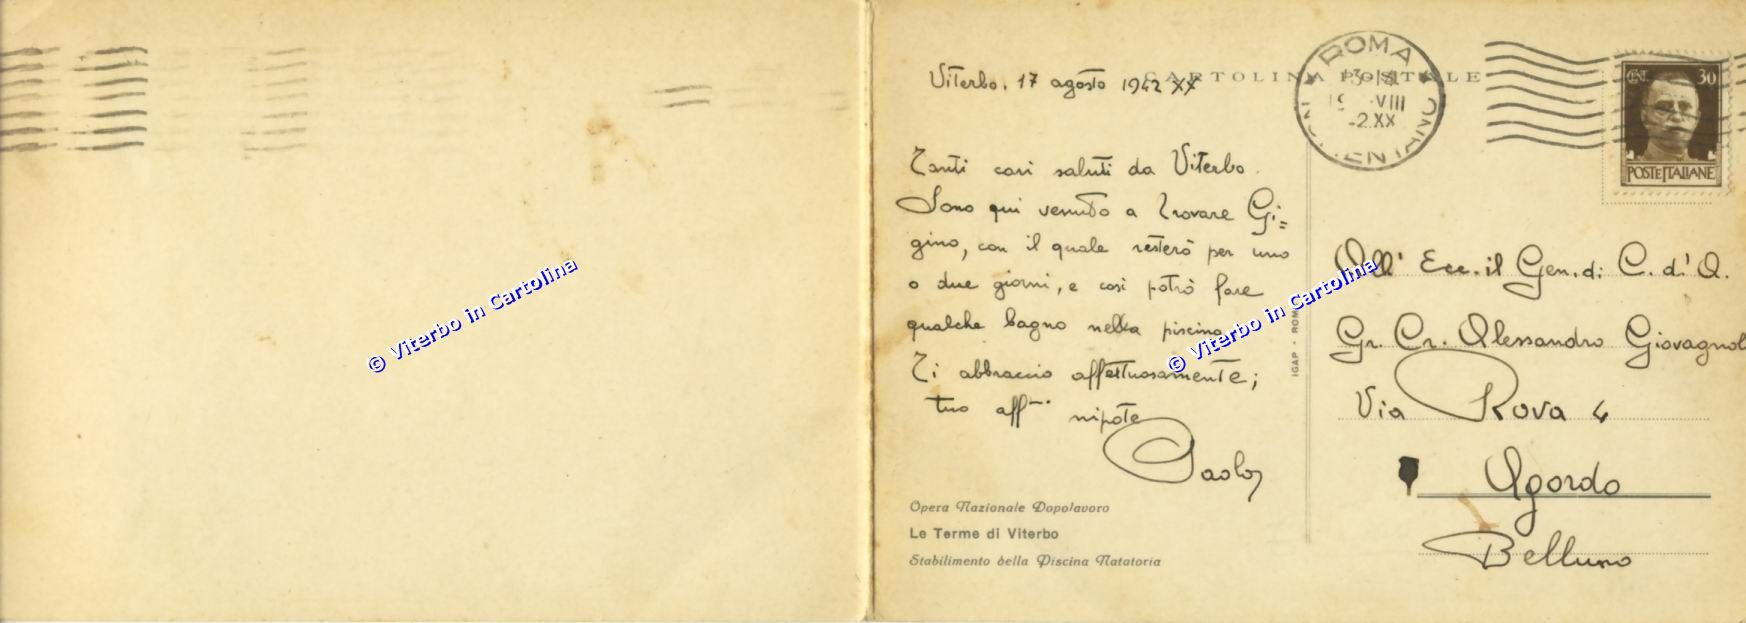 Viterbo, 17 agosto 1942 XX
CARTOLINA POSTALE
Tanti cari saluti da Viterbo.
Sono qui venuto a trovare Gi=
gino, con il quale resterò per uno
o due giorni, e così potrò fare
qualche bagno nella piscina.
Ti abbraccio affettuosamente;
tuo aff.mo nipote
Paolo
Opera Nazionale Dopolavoro
Le Terme di Viterbo
Stabilimento della Piscina Natatoria
IGAP - ROMA
ROMA
VIII
NOMENTANO
CENT. 30
POSTE ITALIANE
All' Ecc. il Gen. di C. d'A.
Gr. Cr. Alessandro Giovagnol
Via Rova 4
Agordo
Belluno
© Viterbo in Cartolina
© Viterbo in Cartolina